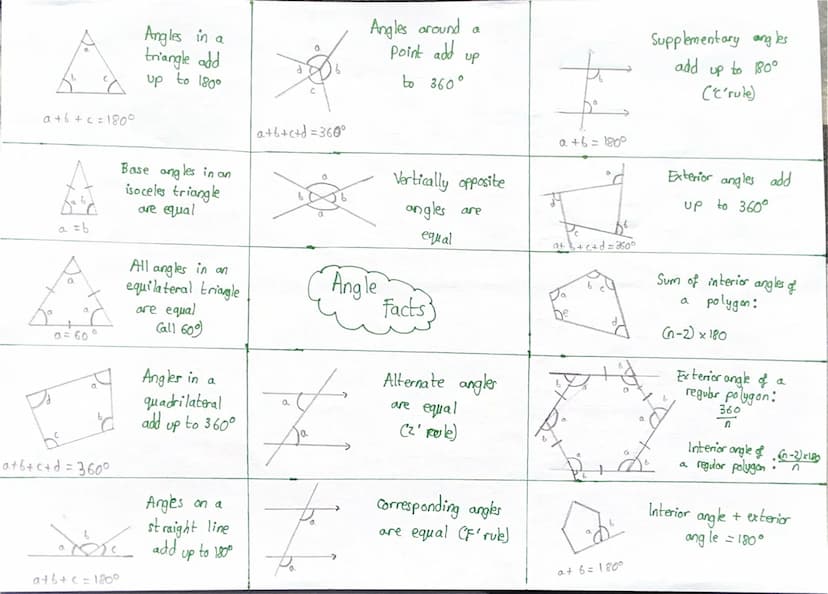 Angles in a
triangle add
up to 180°
a + b + c = 180°
a
b
c
Angles around a
point add up
to 360°
a
d
b
c
a+b+c+d = 360°
Supplementary angles
add up to 180°
('C' rule)
b
a
a + b = 180°
Base angles in an
isoceles triangle
are equal
a
b
a = b
Vertically opposite
angles are
equal
a
b
b
a
Exterior angles add
up to 360°
a
d
b
c
a+ b+c+d = 360°
All angles in an
equilateral triangle
are equal
(all 60°)
a
a
a
a = 60°
Angle
Facts
Sum of interior angles of
a polygon:
(n-2) × 180
b
c
a
e
d
Angles in a
quadrilateral
add up to 360°
a
d
b
c
a+b+c+d = 360°
Alternate angles
are equal
('Z' rule)
a
a
Exterior angle of a
regular polygon:
360
n
Interior angle of
a regular polygon : (n-2)×180
n
b
a
b
a
b
a
b
a
b
a
b
a
Angles on a
straight line
add up to 180°
b
a
c
a+b+c = 180°
Corresponding angles
are equal ('F' rule)
a
a
Interior angle + exterior
angle = 180°
a
b
a + b = 180°